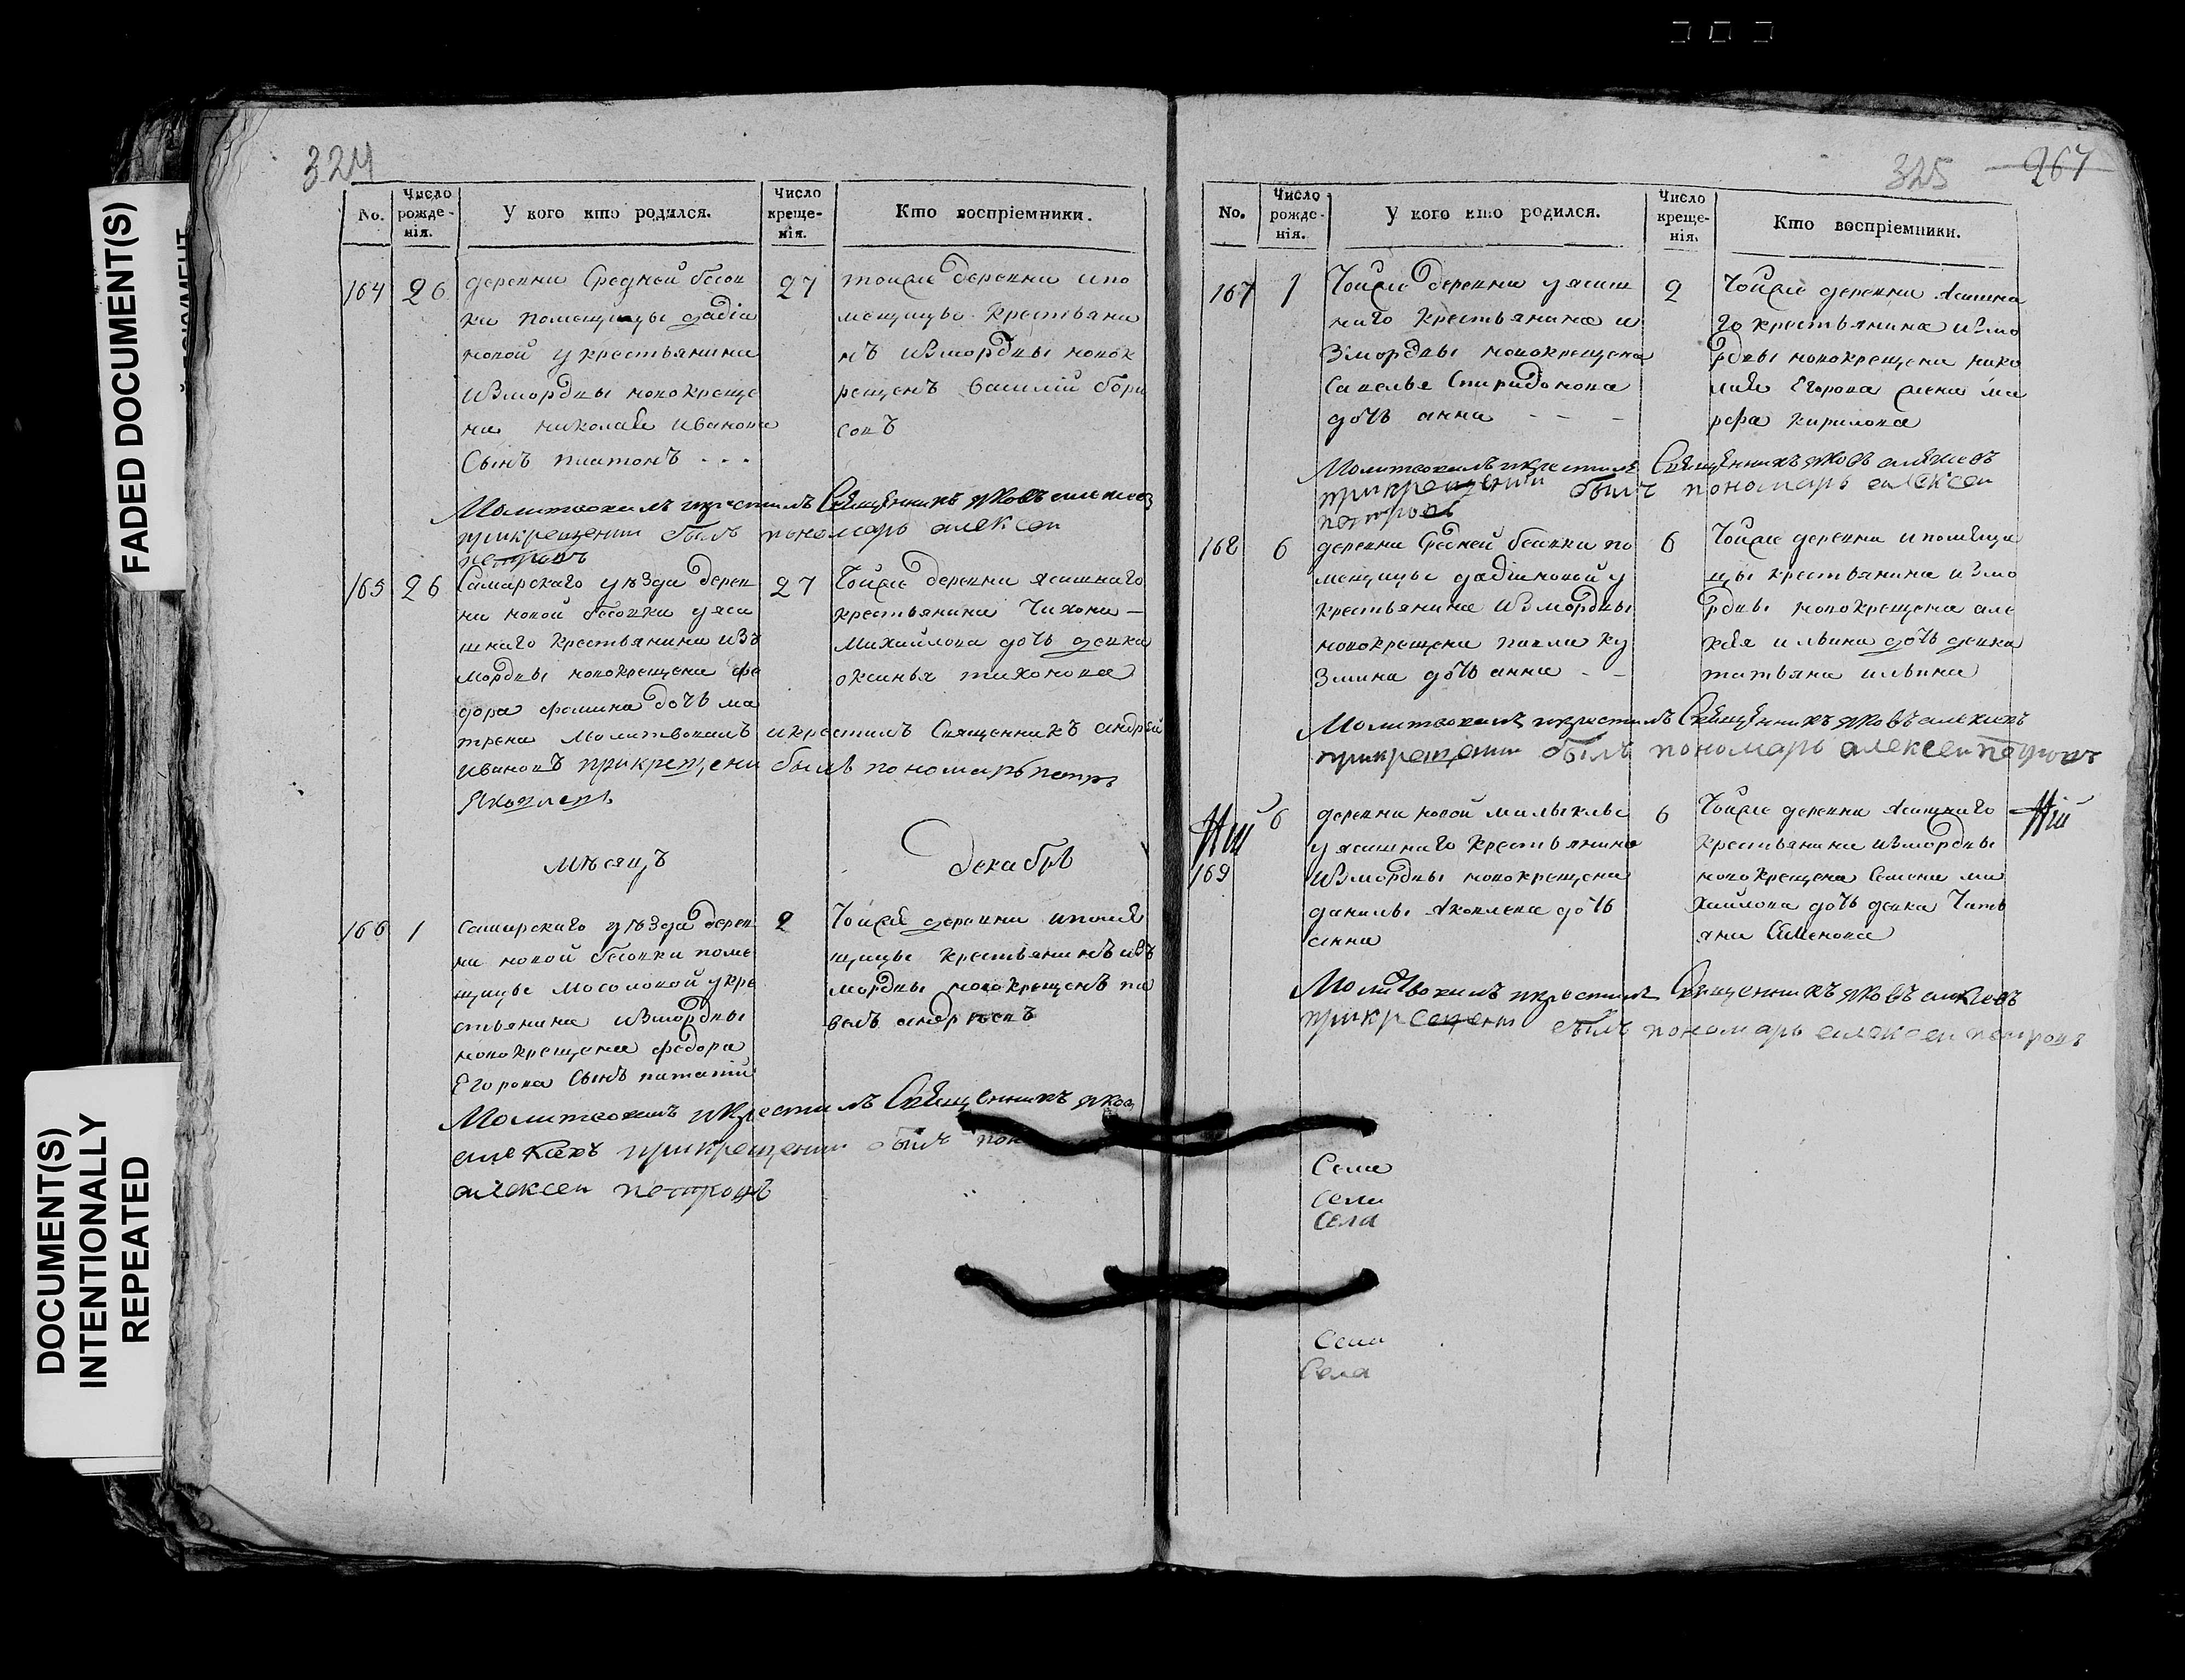 FADED DOCUMENT(S)
DOCUMENT(S)
INTENTIONALLY
REPEATED
324
No.
Число рожде-нія.
У кого кто родился.
Число креще-нія.
Кто воспріемники.
164
26
деревни Средней бесов
ки помещицы
новой у крестьянина
измордвы новокреще
на николая иванова
Сынъ платонъ - - -
27
тойже деревни ипо
мещицы крестьяни
нъ измордвы новок
рещенъ василій бори
совъ
Молитвовалъ икрестилъ Священникъ яковъ алексеев
прикрещении былъ пономарь алексеи
петровъ
165
26
Самарскаго уѣзда дерев
ни новой бесовки уяса
шнаго крестьянина изъ
мордвы новокрещена фе
дора фомина дочь ма
трена
27
Тойже деревни ясашнаго
крестьянина Тихона —
Михайлова дочь девка
оксинья тихонова
Молитвовалъ икрестилъ Священникъ андрей
ивановъ прикрещени былъ пономарь петръ
Яковлевъ
Мѣсяцъ Декабрь
166
1
самарскаго уѣзда дерев
ни новой бесовки поме
щицы Мосоловой укре
стьянина измордвы
новокрещена федора
Егорова Сынъ
2
Тойже деревни ипоме
щицы крестьянинъ изъ
мордвы новокрещенъ па
велъ андреевъ
Молитвовалъ икрестилъ Священникъ яков
алексеевъ прикрещении былъ
алексеи петровъ
325
267
No.
Число рожде-нія.
У кого кто родился.
Число креще-нія.
Кто воспріемники.
167
1
Тойже деревни уясаш
наго крестьянина и
змордвы новокрещена
Савелья Спиридонова
дочь анна - - -
2
Тойже деревни Ясашна
го крестьянина измо
рдвы новокрещена нико
лая Егорова жена ма
рфа кирилова
Молитвовалъ икрестилъ Священникъ яковъ алексеевъ
прикрещении былъ пономарь алексеи
петровъ
168
6
деревни Средней бесовки по
мещицы у
крестьянина измордвы
новокрещена павла ку
змина дочь анна - -
6
Тойже деревни ипомещи
цы крестьянина измо
рдвы новокрещена але
ксея ильина дочь девка
татьяна ильина
Молитвовалъ икрестилъ Священникъ яковъ алексеевъ
прикрещении былъ пономарь алексеи петровъ
169
6
деревни новой малыклы
уясашнаго крестьянина
измордвы новокрещена
данилы Яковлева дочь
анна
6
Тойже деревни Ясашнаго
крестьянина измордвы
новокрещена Семена ми
хайлова дочь девка Тать
яна Семенова
Молитвовалъ икрестилъ Священникъ яковъ алексеевъ
прикрещени былъ пономарь алексеи петровъ
Села
Села
Села
Села
Села